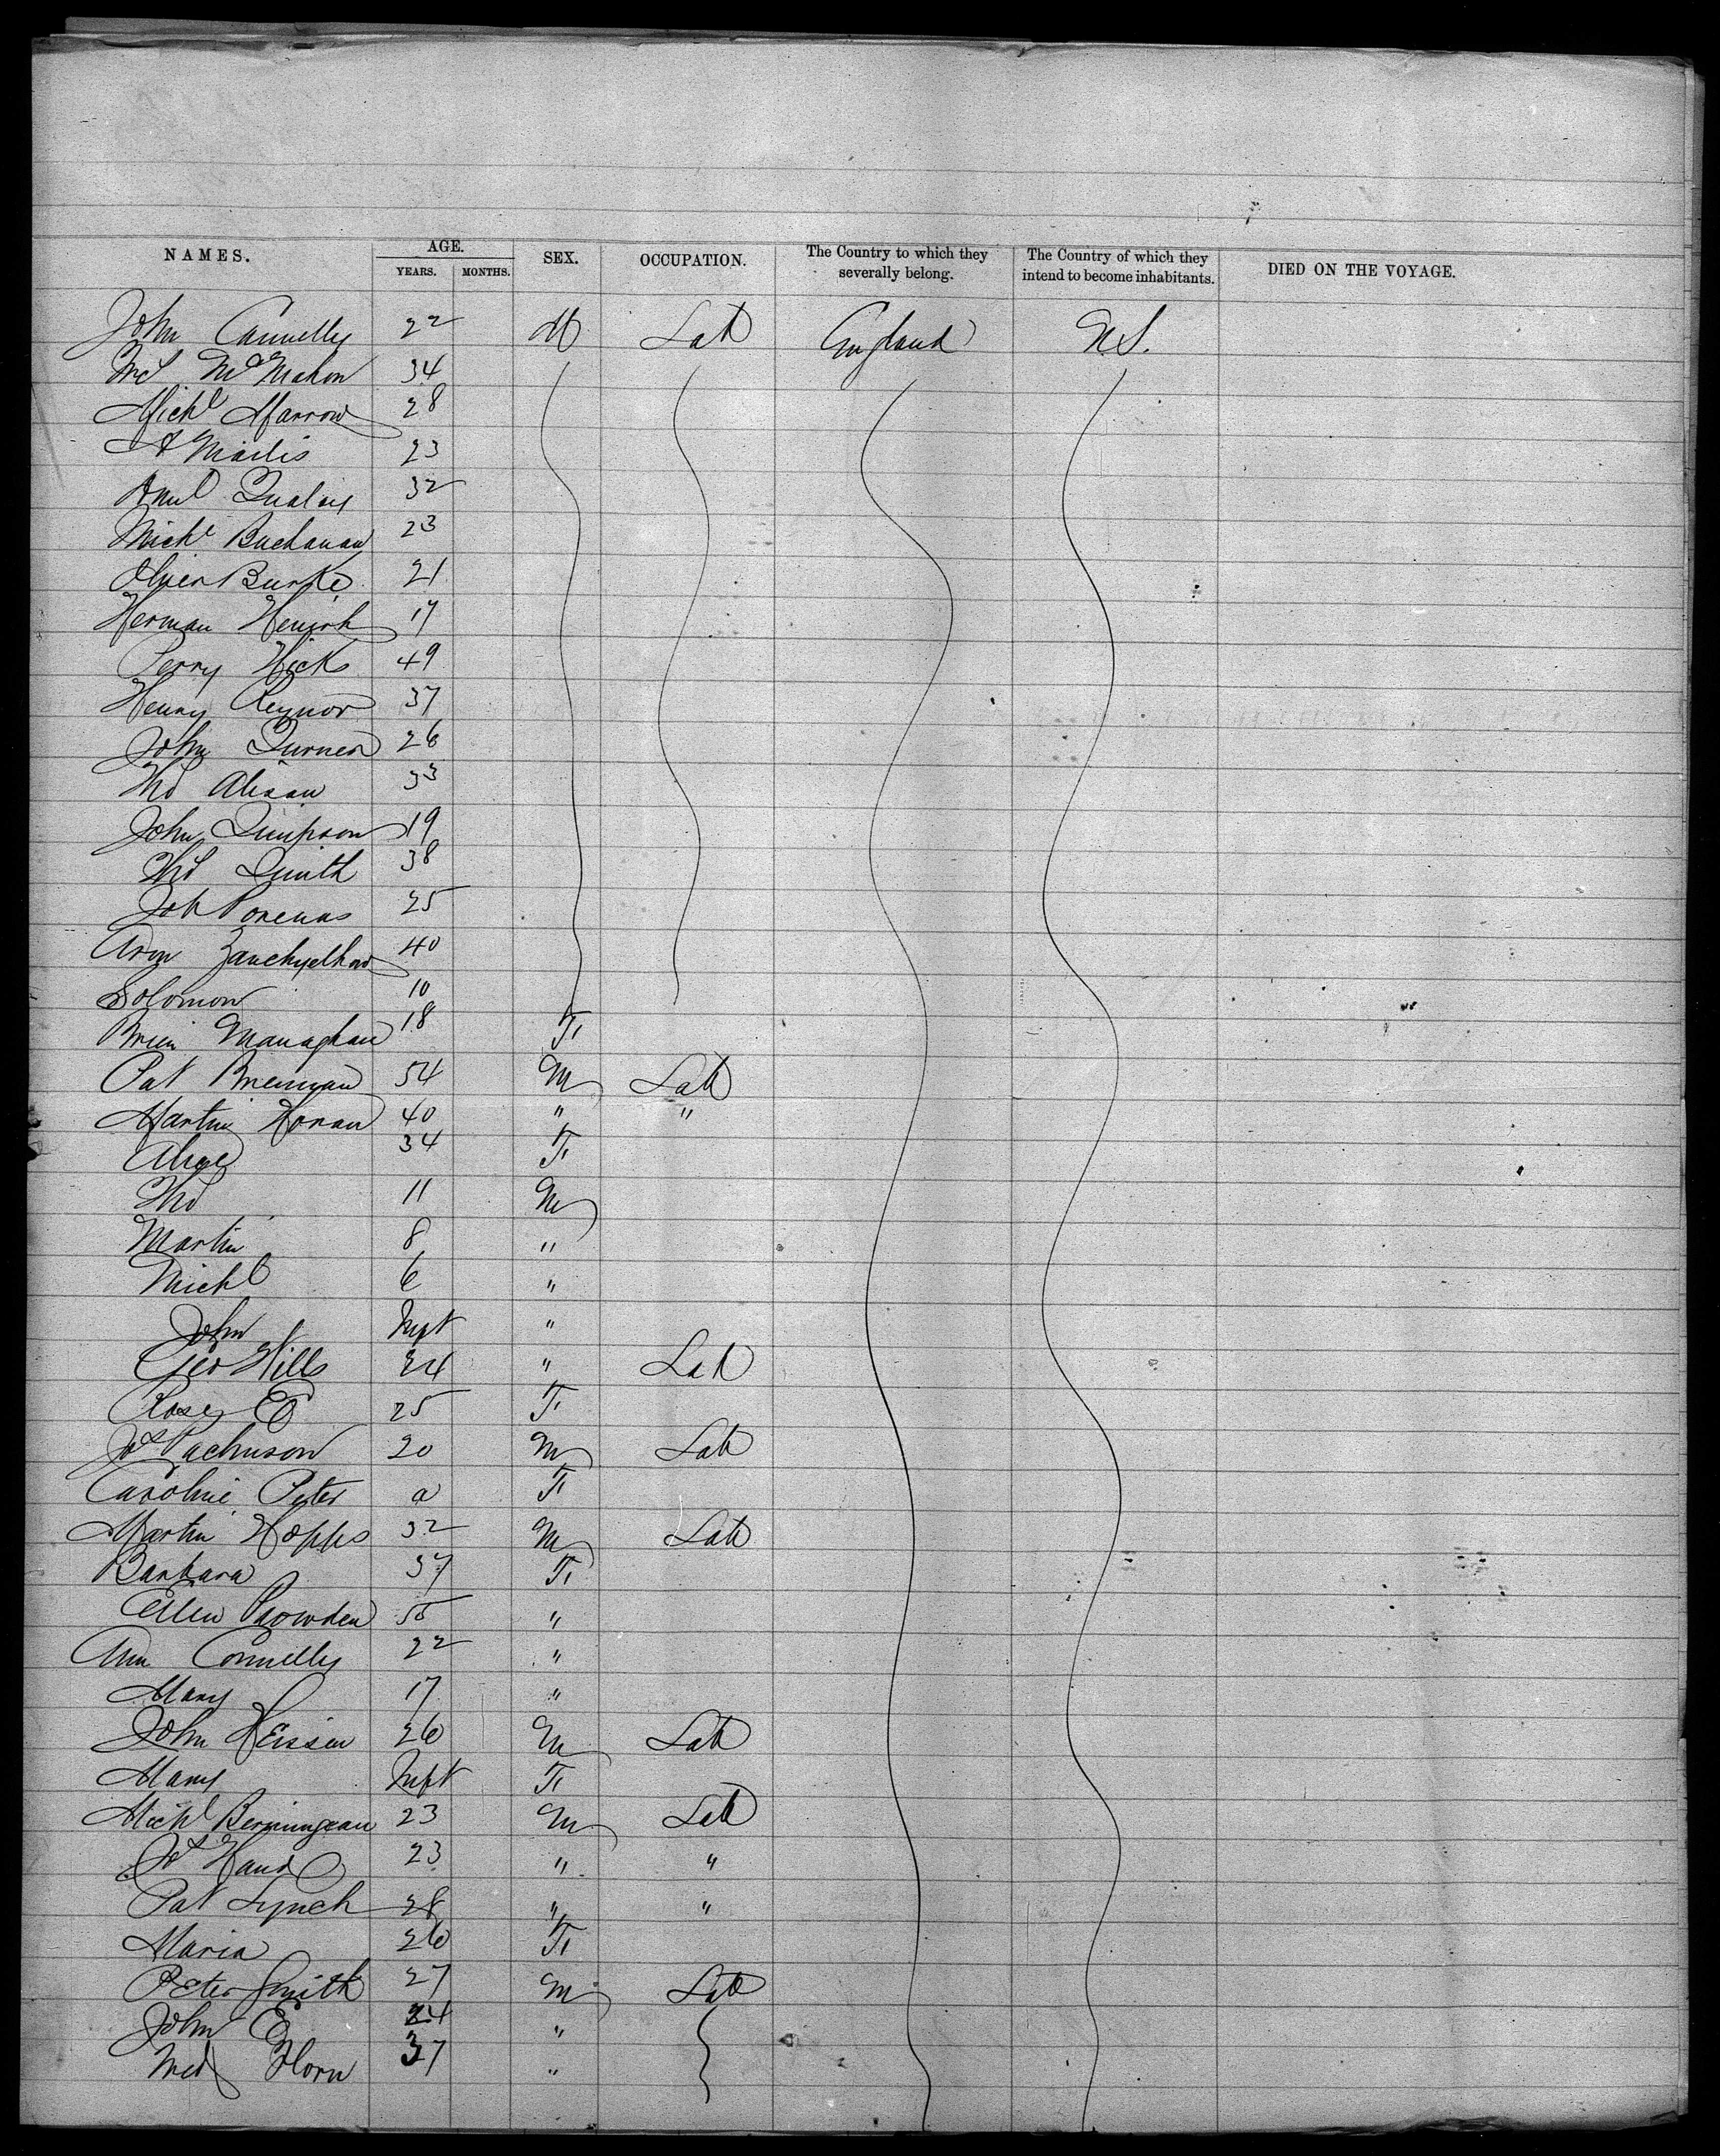 NAMES. AGE. YEARS. MONTHS. SEX. OCCUPATION. The Country to which they severally belong. The Country of which they intend to become inhabitants. DIED ON THE VOYAGE.
John Connelly 22 M Lab England U.S.
McMahon 34
Michl Marrow 28
23
32
Michl Buchanan 23
Oliver Burke 21
Herman 17
Perry Hicks 49
Henry Reynor 37
John Turner 26
Thos 33
John Simpson 19
Thos Smith 38
25
40
Solomon 10
Managhan 18 F
Pat Brennan 54 M Lab
Martin Horan 40 " "
Alice 34 F
Thos 11 M
Martin 8 "
Michl 6 "
John Inft "
Geo Wills 24 " Lab
Rose E 25 F
20 M Lab
Caroline Peter a F
Martin Hopps 32 M Lab
Barbara 37 F
Ellen Plowden "
Ann Connelly 22 "
Mary 17 "
John 26 M Lab
Mary Inft F
Michl 23 M Lab
Hand 23 " "
Pat Lynch 28 " "
Maria 26 F
Peter Smith 27 M Lab
John E 24 "
Horn 37 "